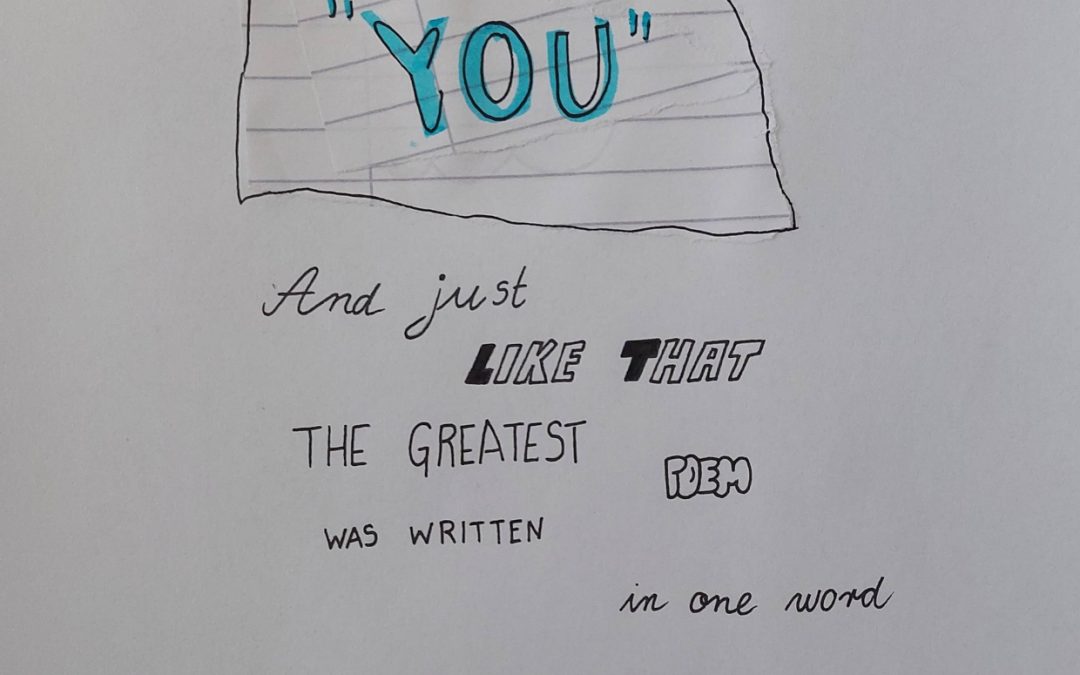 "YOU"
And just
LIKE THAT
THE GREATEST
POEM
WAS WRITTEN
in one word